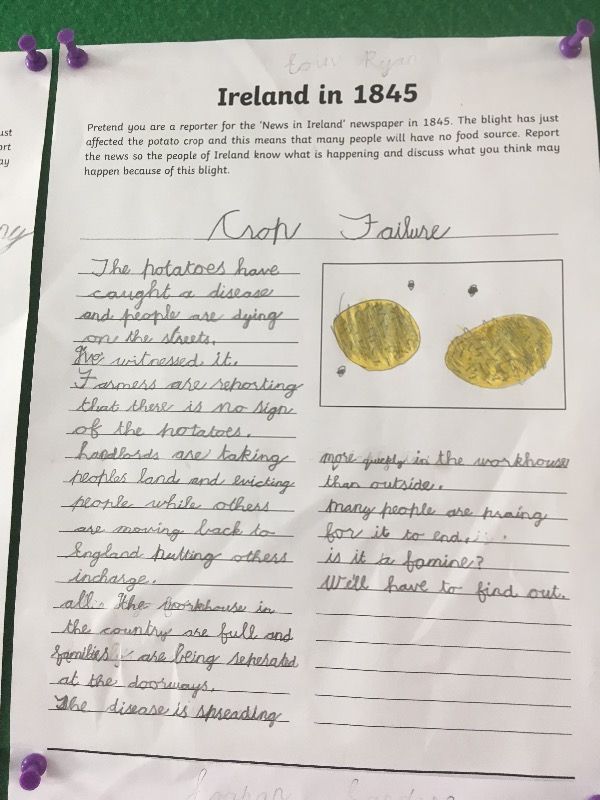 Ryan
Ireland in 1845
Pretend you are a reporter for the 'News in Ireland' newspaper in 1845. The blight has just
affected the potato crop and this means that many people will have no food source. Report
the news so the people of Ireland know what is happening and discuss what you think may
happen because of this blight.
Crop Failure
The potatoes have
caught a disease
and people are dying
on the streets.
I've witnessed it.
Farmers are reporting
that there is no sign
of the potatoes.
handlords are taking
peoples land and evicting
people while others
are moving back to
England putting others
incharge.
all the workhouse in
the country are full and
families are being seperated
at the doorways.
The disease is spreading
more quickly in the workhouse
than outside.
many people are praing
for it to end.
is it a famine?
We'll have to find out.
ust
ort
ay
ny